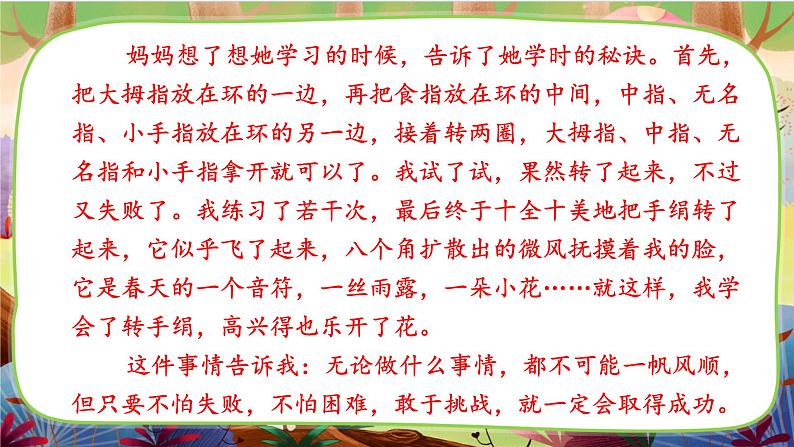 妈妈想了想她学习的时候，告诉了她学时的秘诀。首先，
把大拇指放在环的一边，再把食指放在环的中间，中指、无名
指、小手指放在环的另一边，接着转两圈，大拇指、中指、无
名指和小手指拿开就可以了。我试了试，果然转了起来，不过
又失败了。我练习了若干次，最后终于十全十美地把手绢转了
起来，它似乎飞了起来，八个角扩散出的微风抚摸着我的脸，
它是春天的一个音符，一丝雨露，一朵小花……就这样，我学
会了转手绢，高兴得也乐开了花。
这件事情告诉我：无论做什么事情，都不可能一帆风顺，
但只要不怕失败，不怕困难，敢于挑战，就一定会取得成功。